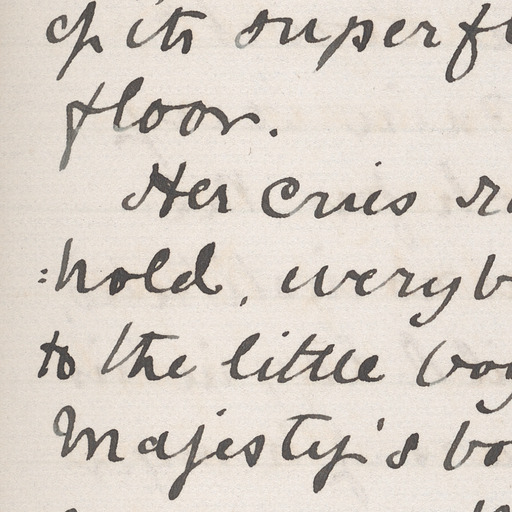 of its superfl
floor.
Her cries r
:hold, everyb
to the little boy
Majesty's bo